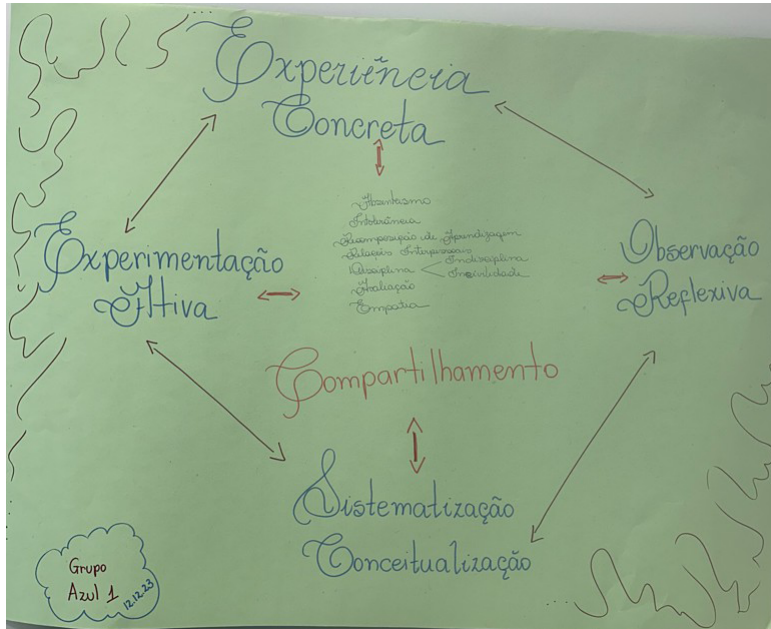 Experiência
Concreta
Absenteísmo
Intolerância
Recomposição de Aprendizagem
Relações Interpessoais
Disciplina
Indisciplina
Incivilidade
Avaliação
Empatia
Experimentação
Ativa
Observação
Reflexiva
Compartilhamento
Sistematização
Conceitualização
Grupo
Azul 1
12.12.23